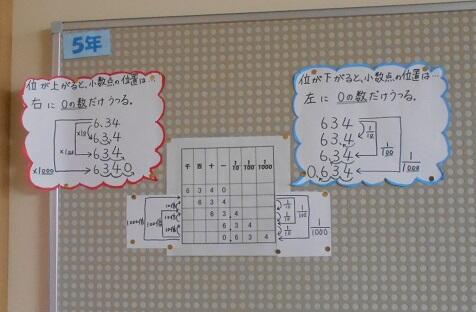 5年
位が上がると、小数点の位置は…
右に0の数だけうつる。
6.34
×10
63.4
×100
634.
×1000
6340.
位が下がると、小数点の位置は…
左に0の数だけうつる。
634
1/10
63.4
1/100
6.34
1/1000
0.634
千 百 十 一 1/10 1/100 1/1000
6 3 4 0
6 3 4
6 3 4
6 3 4
0 6 3 4
1000倍 100倍 10倍
10倍
10倍
1/10
1/10
1/10
1/100
1/1000